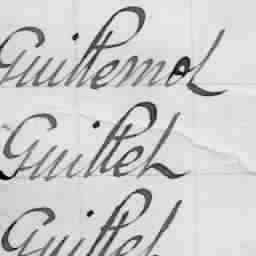 Guillemot
Guillet
Guillet